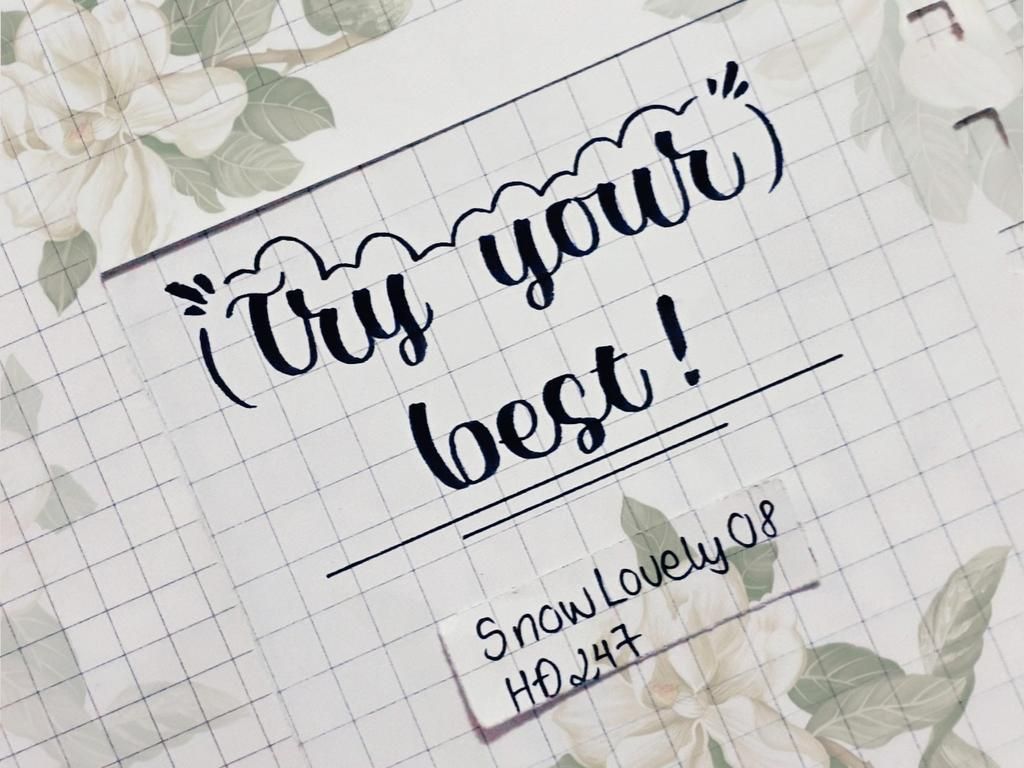 Try your
best!
SnowLovely08
HĐ247